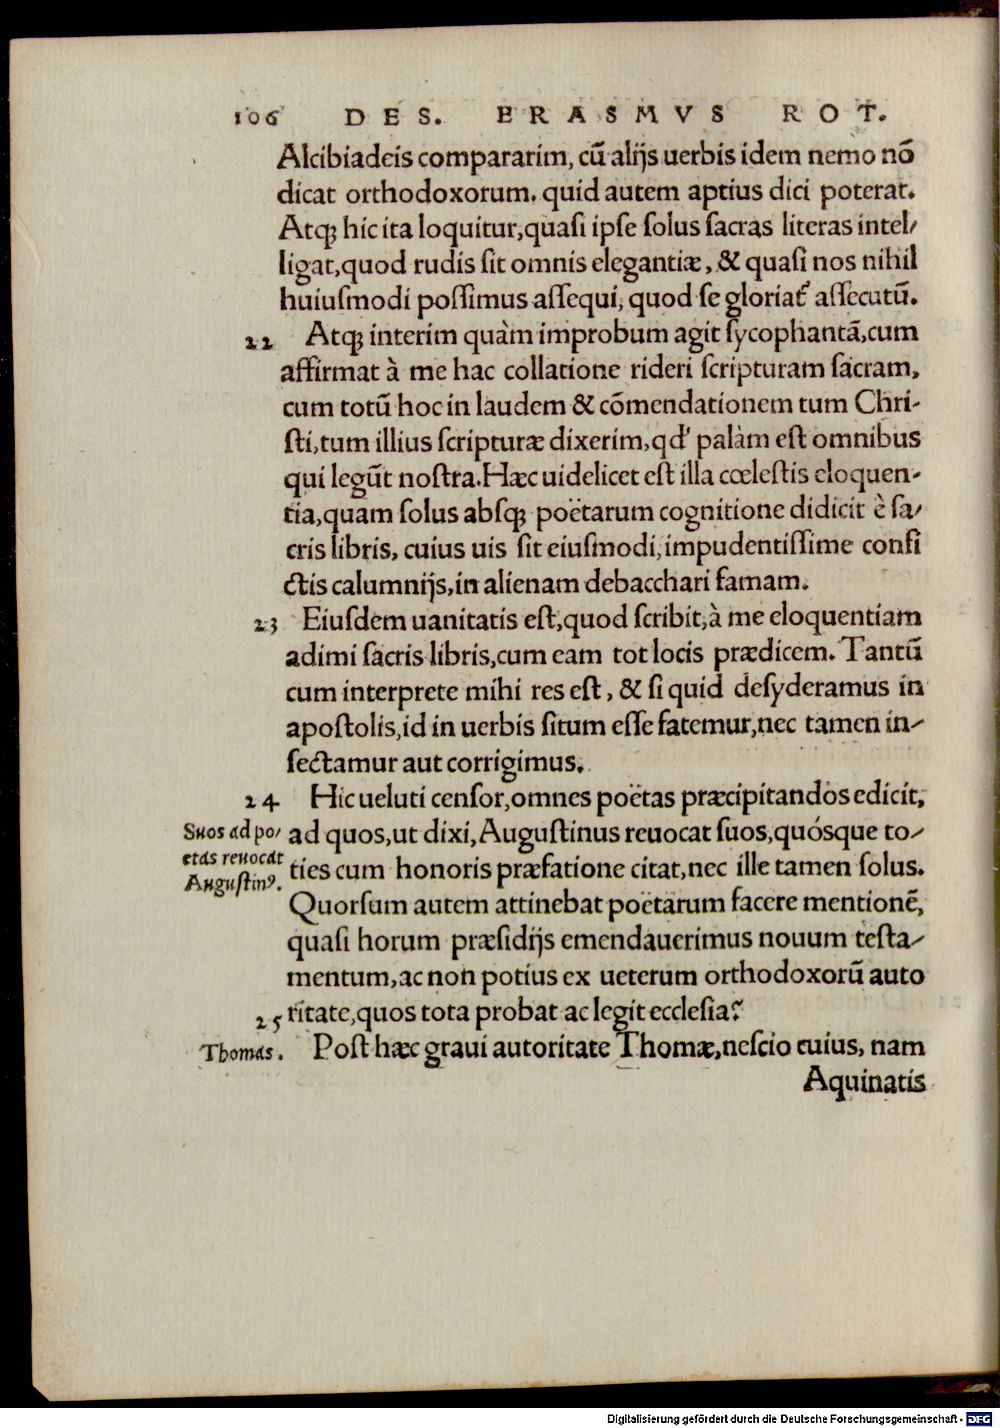 106 DES. ERASMVS ROT.
Alcibiadeis compararim, cũ alijs uerbis idem nemo nõ
dicat orthodoxorum. quid autem aptius dici poterat.
Atqꝫ hic ita loquitur,quasi ipse solus sacras literas intel/
ligat,quod rudis sit omnis elegantiæ, & quasi nos nihil
huiusmodi possimus assequi, quod se gloriat᷑ assecutũ.
22 Atqꝫ interim quàm improbum agit sycophantã,cum
affirmat à me hac collatione rideri scripturam sacram,
cum totũ hoc in laudem & cõmendationem tum Chri-
sti,tum illius scripturæ dixerim,qd' palàm est omnibus
qui legũt nostra.Hæc uidelicet est illa cœlestis eloquen-
tia,quam solus absqꝫ poëtarum cognitione didicit è sa/
cris libris, cuius uis sit eiusmodi, impudentissime confi
ctis calumnijs,in alienam debacchari famam.
23 Eiusdem uanitatis est,quod scribit,à me eloquentiam
adimi sacris libris,cum eam tot locis prædicem. Tantũ
cum interprete mihi res est, & si quid desyderamus in
apostolis,id in uerbis situm esse fatemur,nec tamen in/
sectamur aut corrigimus.
24 Hic ueluti censor,omnes poëtas præcipitandos edicit,
Suos ad po/
etas reuocat
Augustinꝰ.
ad quos,ut dixi,Augustinus reuocat suos,quósque to/
ties cum honoris præfatione citat,nec ille tamen solus.
Quorsum autem attinebat poëtarum facere mentionẽ,
quasi horum præsidijs emendauerimus nouum testa/
mentum,ac non potius ex ueterum orthodoxorũ auto
ritate,quos tota probat ac legit ecclesia?
25 Post hæc graui autoritate Thomæ,nescio cuius, nam
Thomas.
Aquinatis
Digitalisierung gefördert durch die Deutsche Forschungsgemeinschaft - DFG